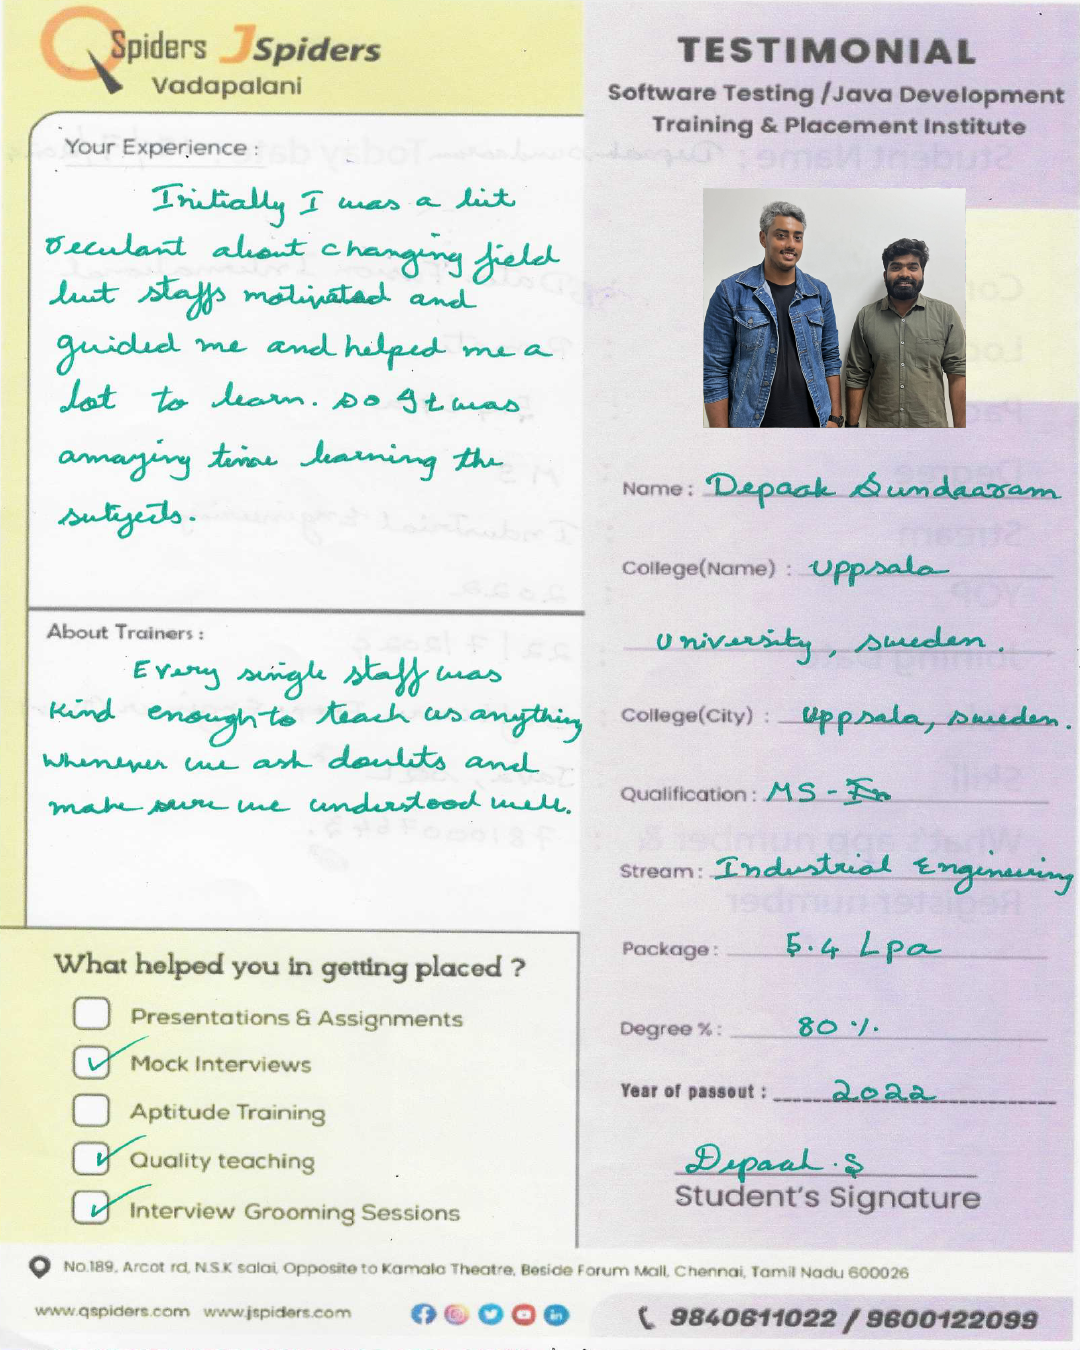 QSpiders JSpiders
Vadapalani
Your Experience :
Initially I was a bit
reculant about changing field
but staffs motivated and
guided me and helped me a
lot to learn. so It was
amazing time learning the
subjects.
About Trainers :
Every single staff was
kind enough to teach us anything
whenever we ask doubts and
make sure we understood well.
What helped you in getting placed ?
Presentations & Assignments
Mock Interviews
Aptitude Training
Quality teaching
Interview Grooming Sessions
TESTIMONIAL
Software Testing /Java Development
Training & Placement Institute
Name : Depaak Sundaaram
College(Name) : Uppsala
University, Sweden.
College(City) : Uppsala, Sweden.
Qualification : MS -
Stream : Industrial Engineering
Package : 5.4 Lpa
Degree % : 80 %.
Year of passout : 2022
Depaak .S
Student's Signature
No.189, Arcot rd, N.S.K salai, Opposite to Kamala Theatre, Beside Forum Mall, Chennai, Tamil Nadu 600026
www.qspiders.com www.jspiders.com
9840611022 / 9600122099